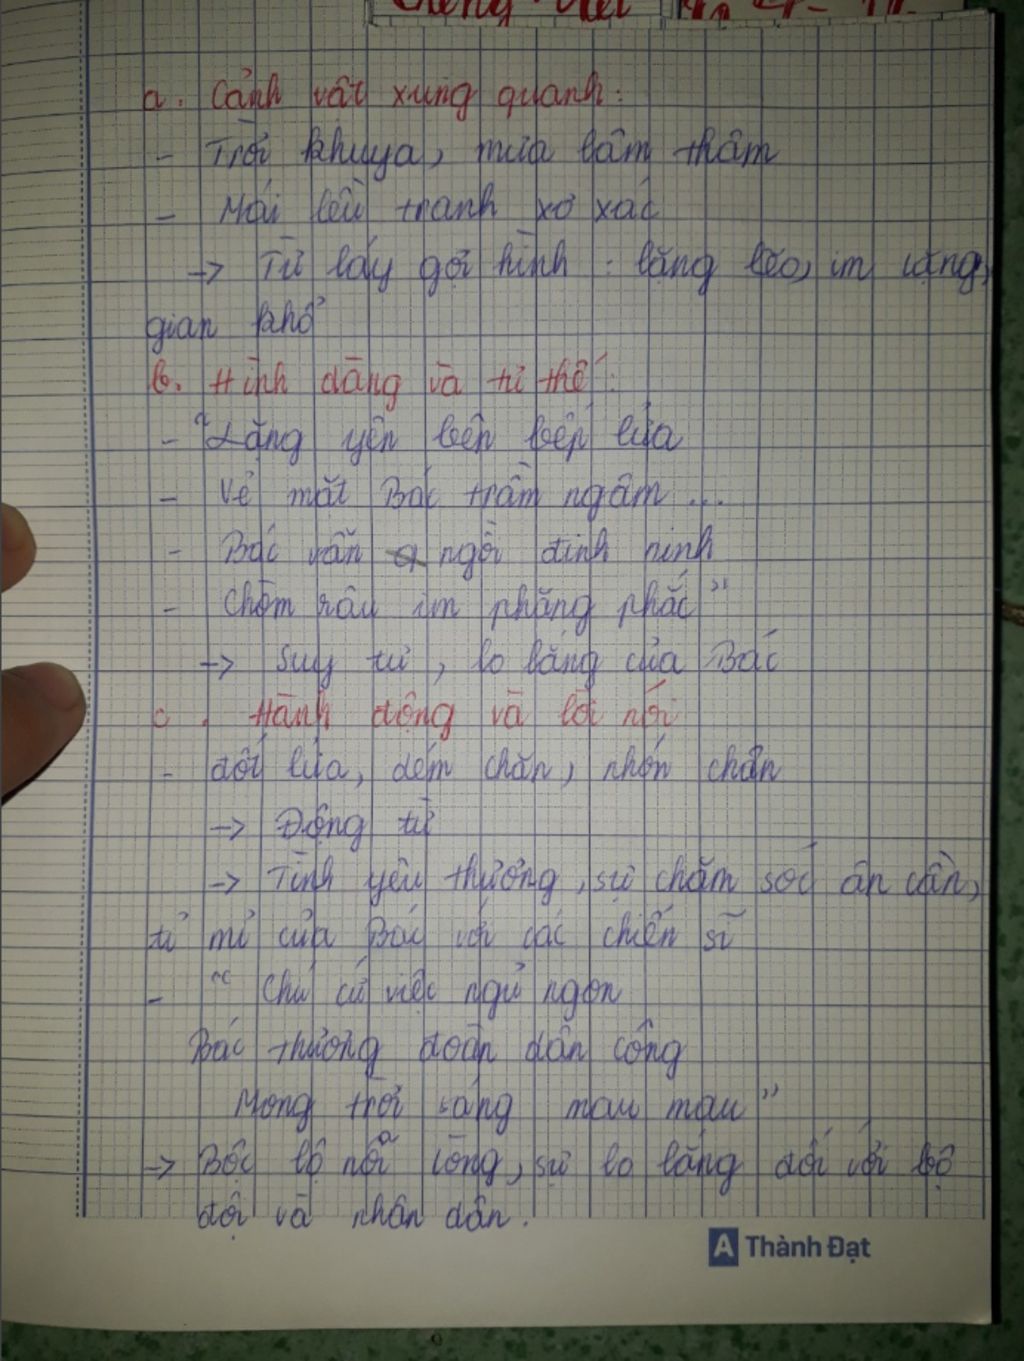 Tiếng Việt
a. Cảnh vật xung quanh:
- Trời khuya, mưa lâm thâm
- Mái lều tranh xơ xác
-> Từ láy gợi hình : lạng lẽo, im lặng,
gian khổ
b. Hình dáng và tư thế :
- "Lặng yên bên bếp lửa
- Vẻ mặt Bác trầm ngâm ...
- Bác vẫn ngồi đinh ninh
- Chòm râu im phăng phắc"
-> Suy tư, lo lắng của Bác
c. Hành động và lời nói
- đốt lửa, dém chăn, nhón chân
-> Động từ
-> Tình yêu thương, sự chăm sóc ân cần,
tỉ mỉ của Bác với các chiến sĩ
- "Chú cứ việc ngủ ngon
Bác thương đoàn dân công
Mong trời sáng mau mau"
-> Bộc lộ nỗi lòng, sự lo lắng đối với bộ
đội và nhân dân.
A Thành Đạt